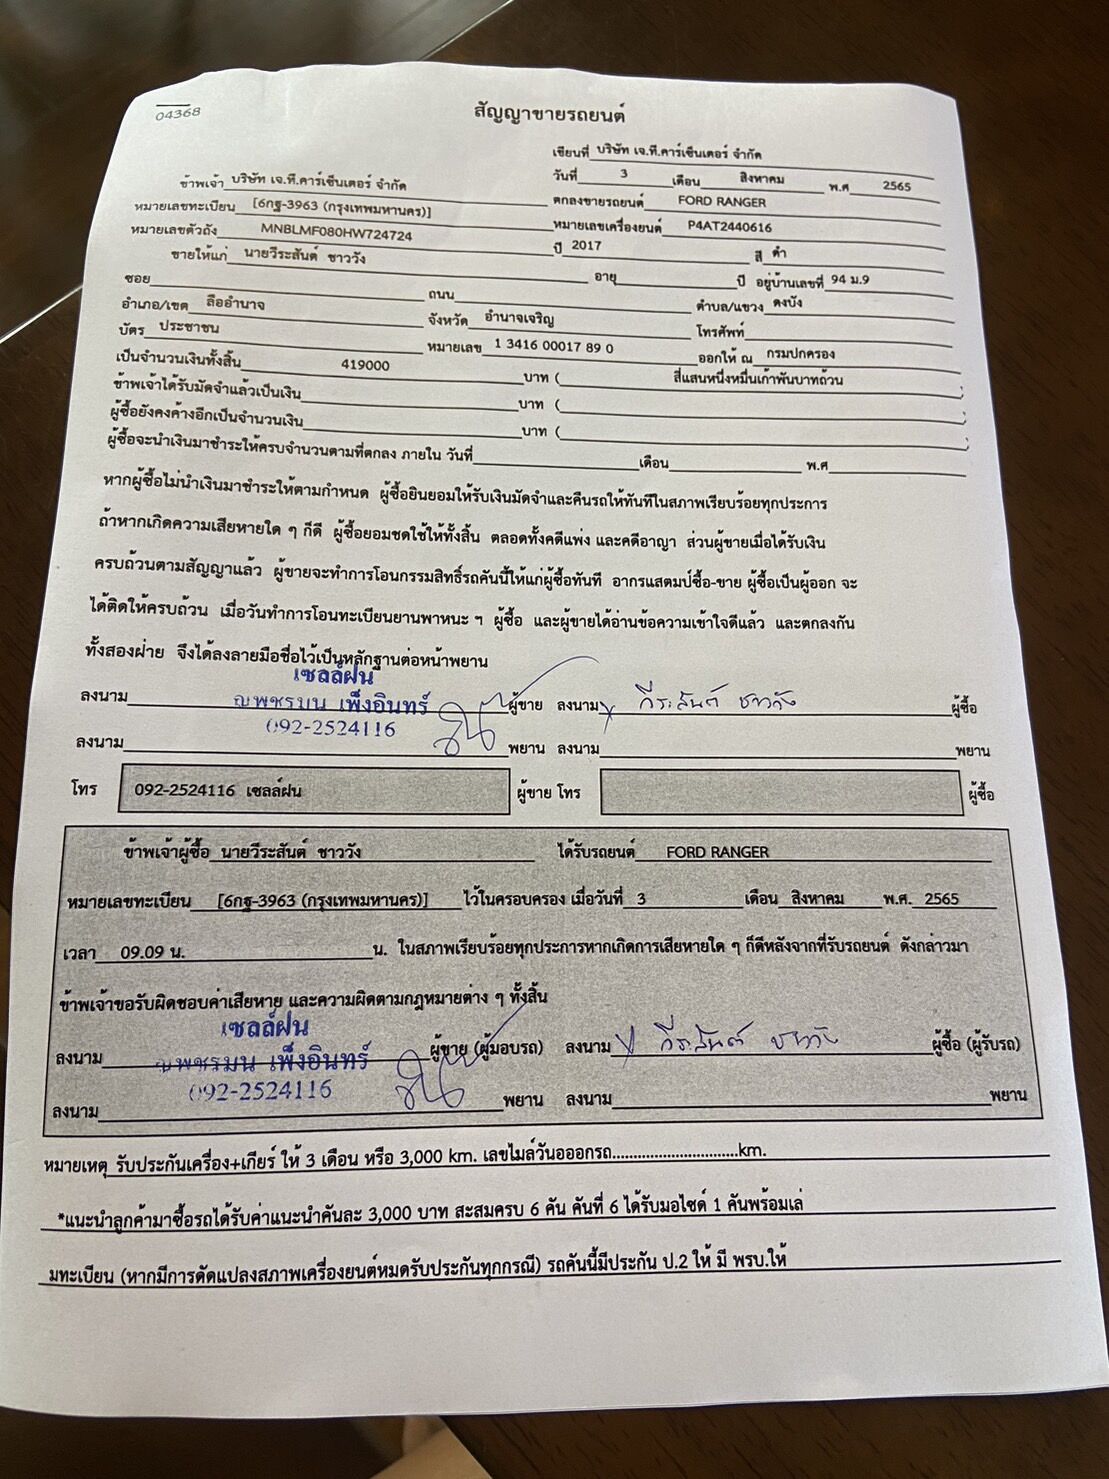 04368
สัญญาขายรถยนต์
เขียนที่ บริษัท เจ.ที.คาร์เซ็นเตอร์ จำกัด
วันที่ 3 เดือน สิงหาคม พ.ศ 2565
ข้าพเจ้า บริษัท เจ.ที.คาร์เซ็นเตอร์ จำกัด ตกลงขายรถยนต์ FORD RANGER
หมายเลขทะเบียน [6กฐ-3963 (กรุงเทพมหานคร)] หมายเลขเครื่องยนต์ P4AT2440616
หมายเลขตัวถัง MNBLMF080HW724724 ปี 2017 สี ดำ
ขายให้แก่ นายวีระสันต์ ชาววัง อายุ ปี อยู่บ้านเลขที่ 94 ม.9
ซอย ถนน ตำบล/แขวง ดงบัง
อำเภอ/เขต ลืออำนาจ จังหวัด อำนาจเจริญ โทรศัพท์
บัตร ประชาชน หมายเลข 1 3416 00017 89 0 ออกให้ ณ กรมปกครอง
เป็นจำนวนเงินทั้งสิ้น 419000 บาท ( สี่แสนหนึ่งหมื่นเก้าพันบาทถ้วน )
ข้าพเจ้าได้รับมัดจำแล้วเป็นเงิน บาท ( )
ผู้ซื้อยังคงค้างอีกเป็นจำนวนเงิน บาท ( )
ผู้ซื้อจะนำเงินมาชำระให้ครบจำนวนตามที่ตกลง ภายใน วันที่ เดือน พ.ศ
หากผู้ซื้อไม่นำเงินมาชำระให้ตามกำหนด ผู้ซื้อยินยอมให้รับเงินมัดจำและคืนรถให้ทันทีในสภาพเรียบร้อยทุกประการ
ถ้าหากเกิดความเสียหายใด ๆ ก็ดี ผู้ซื้อยอมชดใช้ให้ทั้งสิ้น ตลอดทั้งคดีแพ่ง และคดีอาญา ส่วนผู้ขายเมื่อได้รับเงิน
ครบถ้วนตามสัญญาแล้ว ผู้ขายจะทำการโอนกรรมสิทธิ์รถคันนี้ให้แก่ผู้ซื้อทันที อากรแสตมป์ซื้อ-ขาย ผู้ซื้อเป็นผู้ออก จะ
ได้ติดให้ครบถ้วน เมื่อวันทำการโอนทะเบียนยานพาหนะ ฯ ผู้ซื้อ และผู้ขายได้อ่านข้อความเข้าใจดีแล้ว และตกลงกัน
ทั้งสองฝ่าย จึงได้ลงลายมือชื่อไว้เป็นหลักฐานต่อหน้าพยาน
เซลล์ฝน
ลงนาม ญพชรมน เพ็งอินทร์ ผู้ขาย ลงนาม วีระสันต์ ชาววัง ผู้ซื้อ
092-2524116
ลงนาม พยาน ลงนาม พยาน
โทร 092-2524116 เซลล์ฝน ผู้ขาย โทร ผู้ซื้อ
ข้าพเจ้าผู้ซื้อ นายวีระสันต์ ชาววัง ได้รับรถยนต์ FORD RANGER
หมายเลขทะเบียน [6กฐ-3963 (กรุงเทพมหานคร)] ไว้ในครอบครอง เมื่อวันที่ 3 เดือน สิงหาคม พ.ศ. 2565
เวลา 09.09 น. น. ในสภาพเรียบร้อยทุกประการหากเกิดการเสียหายใด ๆ ก็ดีหลังจากที่รับรถยนต์ ดังกล่าวมา
ข้าพเจ้าขอรับผิดชอบค่าเสียหาย และความผิดตามกฎหมายต่าง ๆ ทั้งสิ้น
เซลล์ฝน
ลงนาม ญพชรมน เพ็งอินทร์ ผู้ขาย (ผู้มอบรถ) ลงนาม วีระสันต์ ชาววัง ผู้ซื้อ (ผู้รับรถ)
092-2524116
ลงนาม พยาน ลงนาม พยาน
หมายเหตุ รับประกันเครื่อง+เกียร์ ให้ 3 เดือน หรือ 3,000 km. เลขไมล์วันอออกรถ..............................km.
*แนะนำลูกค้ามาซื้อรถได้รับค่าแนะนำคันละ 3,000 บาท สะสมครบ 6 คัน คันที่ 6 ได้รับมอไซด์ 1 คันพร้อมเล่
มทะเบียน (หากมีการดัดแปลงสภาพเครื่องยนต์หมดรับประกันทุกกรณี) รถคันนี้มีประกัน ป.2 ให้ มี พรบ.ให้